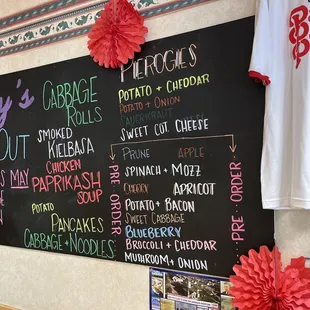 y's
OUT
MAY
CABBAGE
ROLLS
SMOKED
KIELBASA
CHICKEN
PAPRIKASH
SOUP
POTATO
PANCAKES
CABBAGE + NOODLES
PIEROGIES
POTATO + CHEDDAR
POTATO + ONION
SAUERKRAUT
SWEET CHEESE
PRE ORDER
PRUNE APPLE
SPINACH + MOZZ
CHERRY APRICOT
POTATO + BACON
SWEET CABBAGE
BLUEBERRY
BROCCOLI + CHEDDAR
MUSHROOM + ONION
PRE ORDER